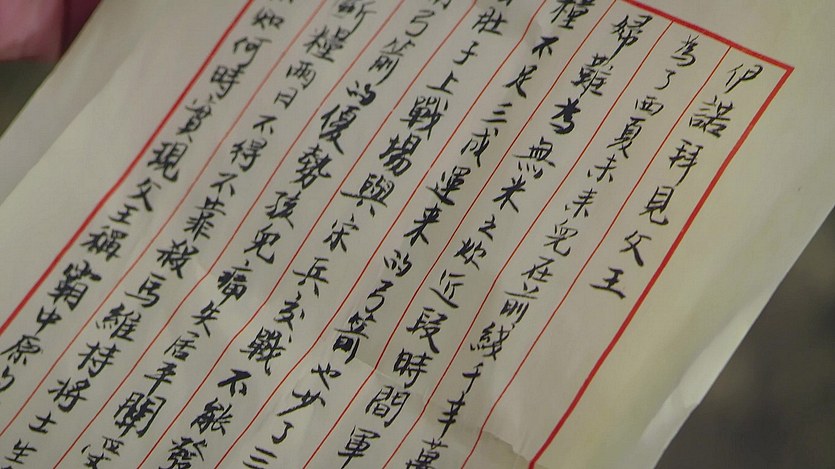 伊諾拜見父王
為了西夏未来兒在前綫千辛萬
婦難為無米之炊近段時間軍
糧不足三成運来的弓箭也少了三
肚子上戰場與宋兵交戰不能發
弓箭的優勢孩兒痛失居平關
斷糧兩日不得不靠殺馬維持將士生
知何時實現父王稱霸中原